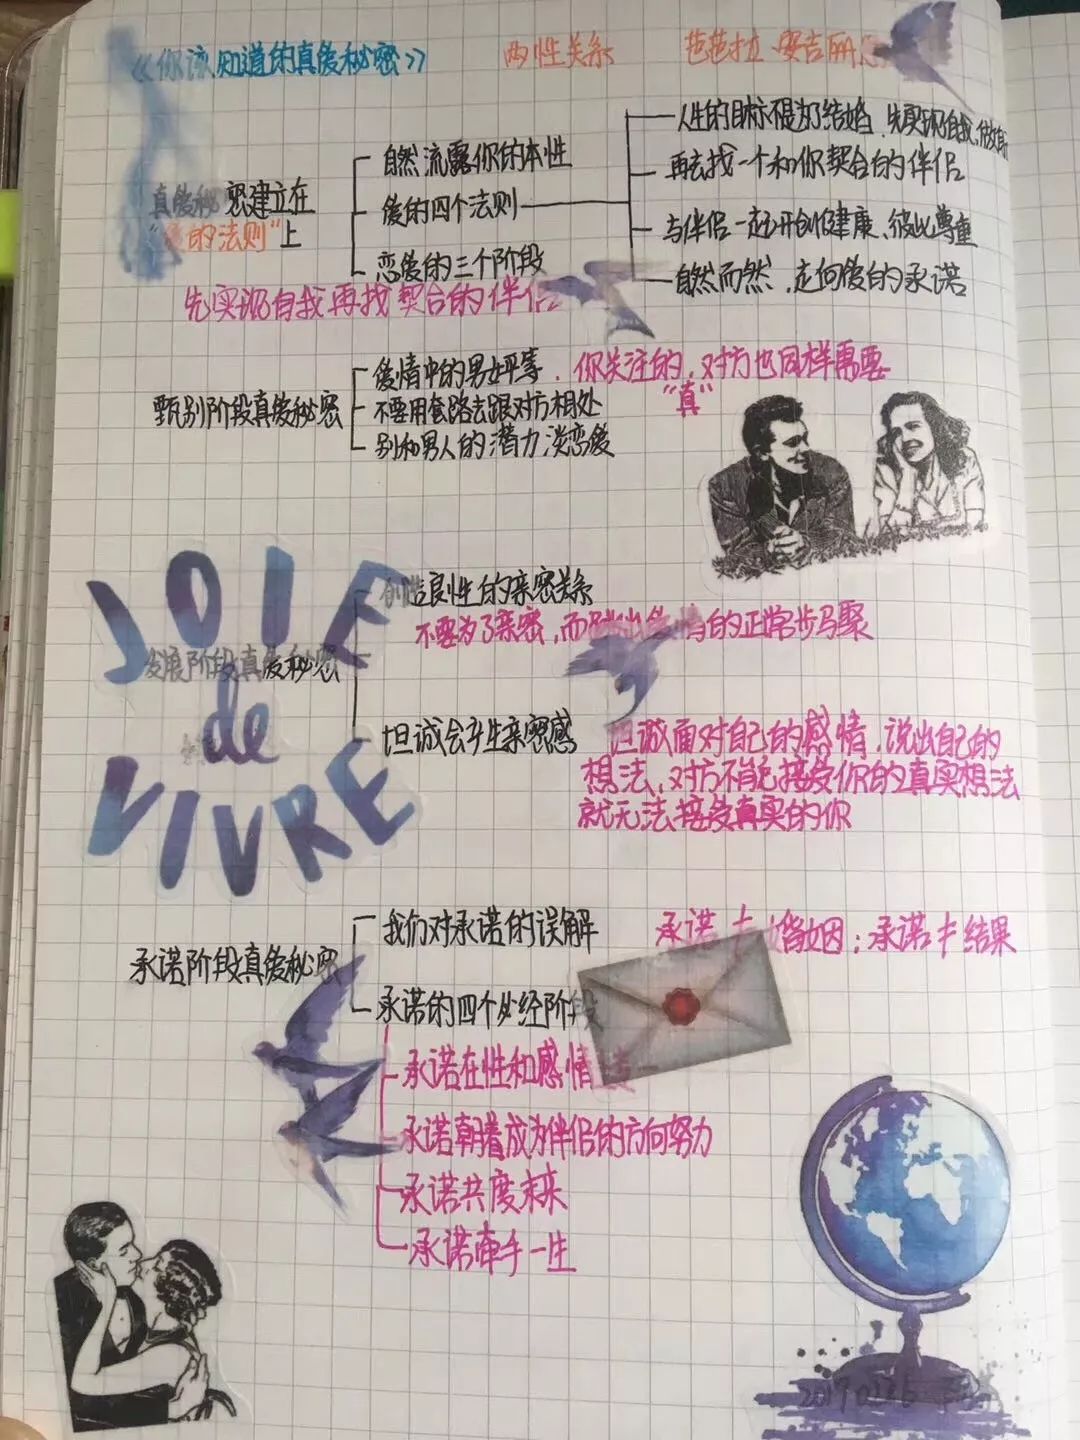 《你该知道的真爱秘密》 两性关系 芭芭拉·安吉丽思
人生的目标不是为了结婚，先实现自我，做自
自然流露你的本性
再去找一个和你契合的伴侣
真爱秘密建立在
爱的四个法则
"爱的法则"上
与伴侣一起开创健康、彼此尊重
恋爱的三个阶段
自然而然，走向爱的承诺
先实现自我再找契合的伴侣
爱情中的男女平等，你关注的，对方也同样需要
甄别阶段真爱秘密
不要用套路去跟对方相处 "真"
别和男人的潜力谈恋爱
JOIE
创造良性的亲密关系
不要为了亲密，而 的正常步骤
发展阶段真爱秘密
de
坦诚会产生亲密感 坦诚面对自己的感情，说出自己的
想法，对方不能接受你的真实想法
就无法接受真实的你
VIVRE
我们对承诺的误解 承诺≠婚姻；承诺≠结果
承诺阶段真爱秘密
承诺的四个必经阶段
承诺在性和感情
承诺朝着成为伴侣的方向努力
承诺共度未来
承诺牵手一生